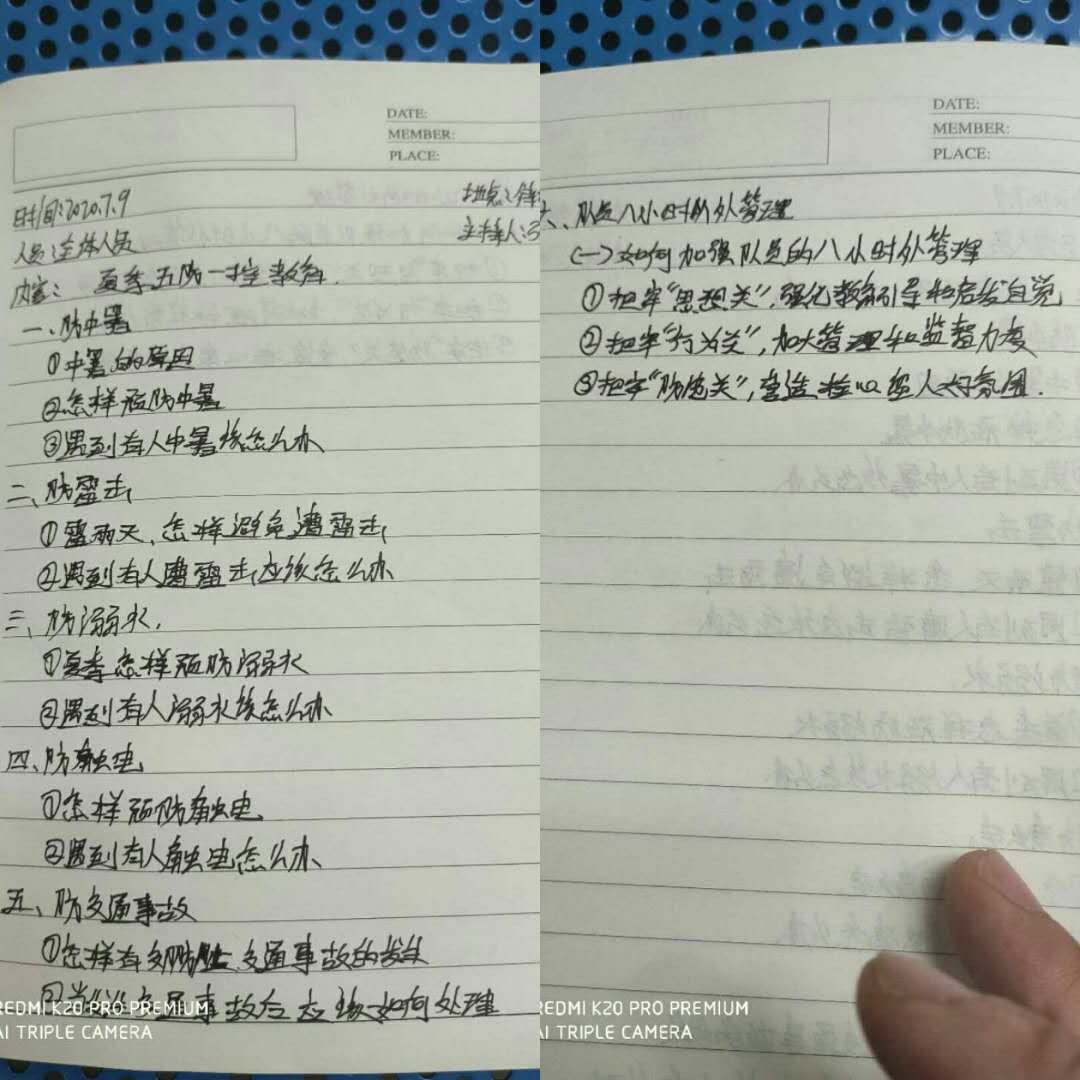 DATE:
MEMBER:
PLACE:
时间:2020.7.9
地点:
人员:全体人员
主持人:
内容: 夏季五防一控教育.
一、防中暑
①中暑的原因
②怎样预防中暑
③遇到有人中暑该怎么办
二、防雷击
①雷雨天、怎样避免遭雷击
②遇到有人遭雷击应该怎么办
三、防溺水.
①夏季怎样预防溺水
②遇到有人溺水该怎么办
四、防触电
①怎样预防触电
②遇到有人触电怎么办
五、防交通事故
①怎样有效防止交通事故的发生
②当发生交通事故后应该如何处理
REDMI K20 PRO PREMIUM
AI TRIPLE CAMERA
DATE:
MEMBER:
PLACE:
六、队员八小时外管理
(一)如何加强队员的八小时外管理
①把牢“思想关”,强化教育引导和启发自觉
②把牢“行为关”,加大管理和监督力度
③把牢“防范关”,营造 人的氛围.
REDMI K20 PRO PREMIUM
AI TRIPLE CAMERA